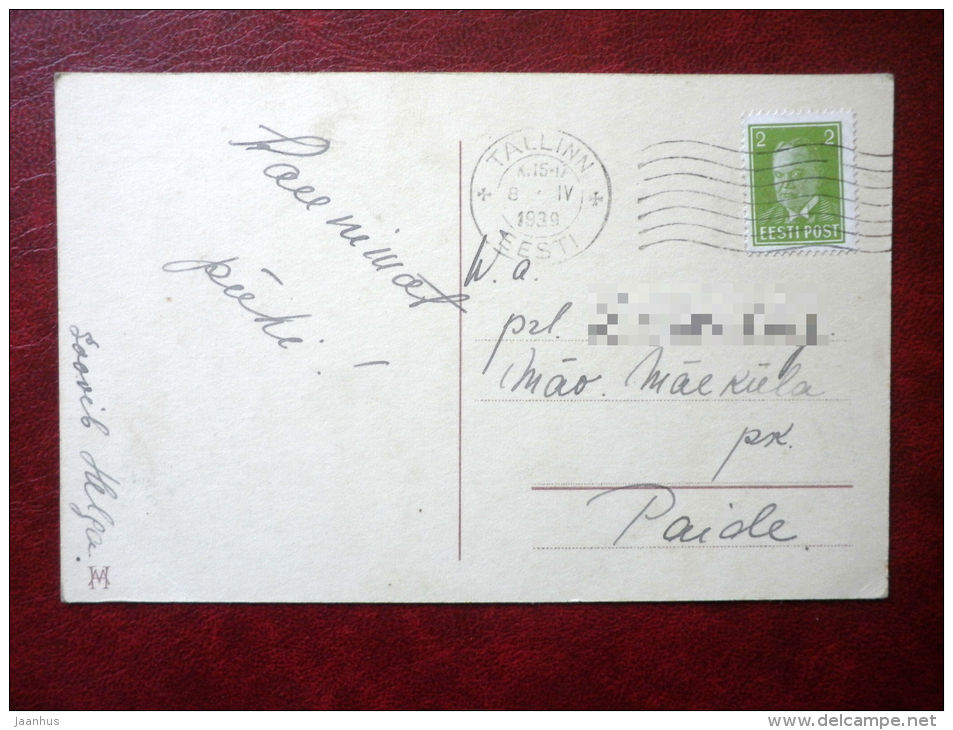 Roeemimat
pühi!
Soovib Helga.
TALLINN
K.15-17
8 · IV
1939
EESTI
2 2
EESTI POST
W. a.
prl.
Mäo. Mäeküla
pk.
Paide.
jaanhus
www.delcampe.net